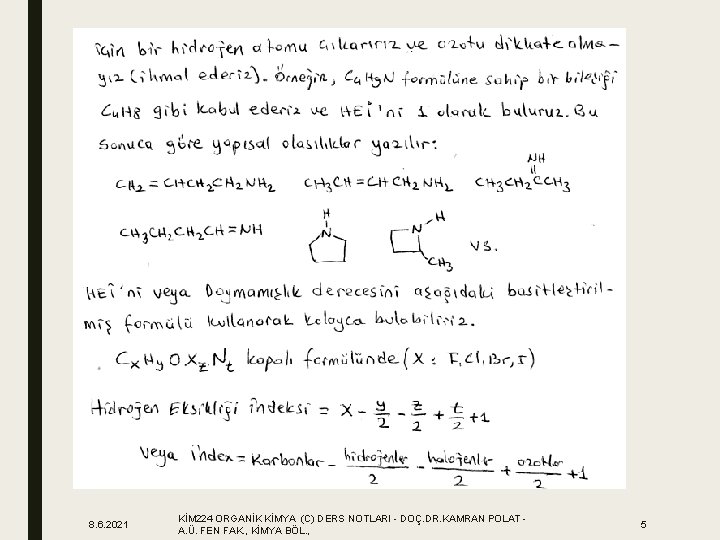 için bir hidrojen atomu çıkarırız ve azotu dikkate alma-
yız (ihmal ederiz). Örneğin, C4H9N formülüne sahip bir bileşiği
C4H8 gibi kabul ederiz ve HEİ'ni 1 olarak buluruz. Bu
sonuca göre yapısal olasılıklar yazılır:
CH2=CHCH2CH2NH2 CH3CH=CHCH2NH2 CH3CH2CCH3 NH
CH3CH2CH2CH=NH H N N H CH3 vs.
HEİ'ni veya Doymamışlık derecesini aşağıdaki basitleştiril-
miş formülü kullanarak kolayca bulabiliriz.
CxHyOXzNt kapalı formülünde (X: F, Cl, Br, I)
Hidrojen Eksikliği İndeksi = X - y/2 - z/2 + t/2 + 1
veya İndex = Karbonlar - hidrojenler/2 - halojenler/2 + azotlar/2 + 1
8.6.2021
KİM224 ORGANİK KİMYA (C) DERS NOTLARI - DOÇ.DR.KAMRAN POLAT -
A.Ü. FEN FAK., KİMYA BÖL.,
5